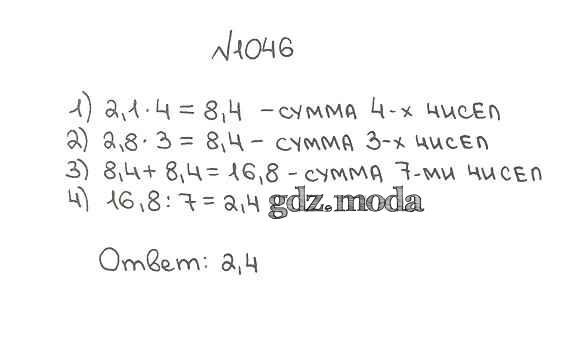 №1046
1) 2,1·4 = 8,4 – сумма 4-х чисел
2) 2,8·3 = 8,4 – сумма 3-х чисел
3) 8,4 + 8,4 = 16,8 – сумма 7-ми чисел
4) 16,8 : 7 = 2,4 gdz.moda
Ответ: 2,4